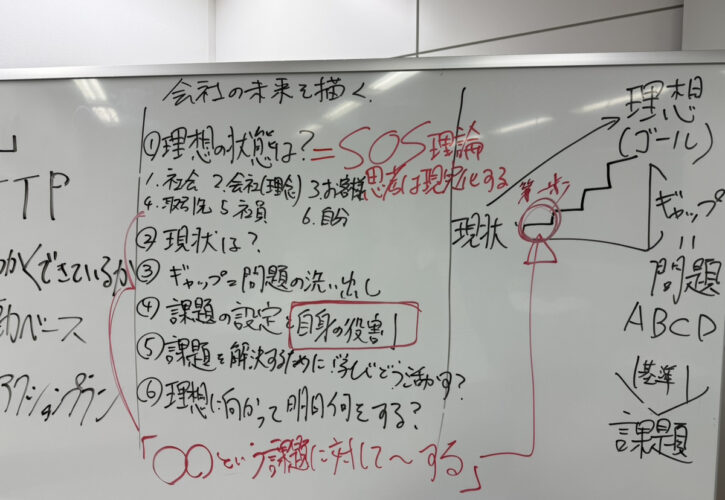 TTP
かくできているか
動ベース
アクションプラン
会社の未来を描く.
①理想の状態は?=SOS理論
1.社会 2.会社(理念) 3.お客様 思考は現実化する
4.取引先 5.社員 6.自分
②現状は?
③ギャップ=問題の洗い出し
④課題の設定と自身の役割
⑤課題を解決するために学んでどう活かす?
⑥理想に向かって明日何をする?
「〇〇という課題に対して〜する」
理想
(ゴール)
第一歩
現状
ギャップ
=
問題
ABCD
基準
課題